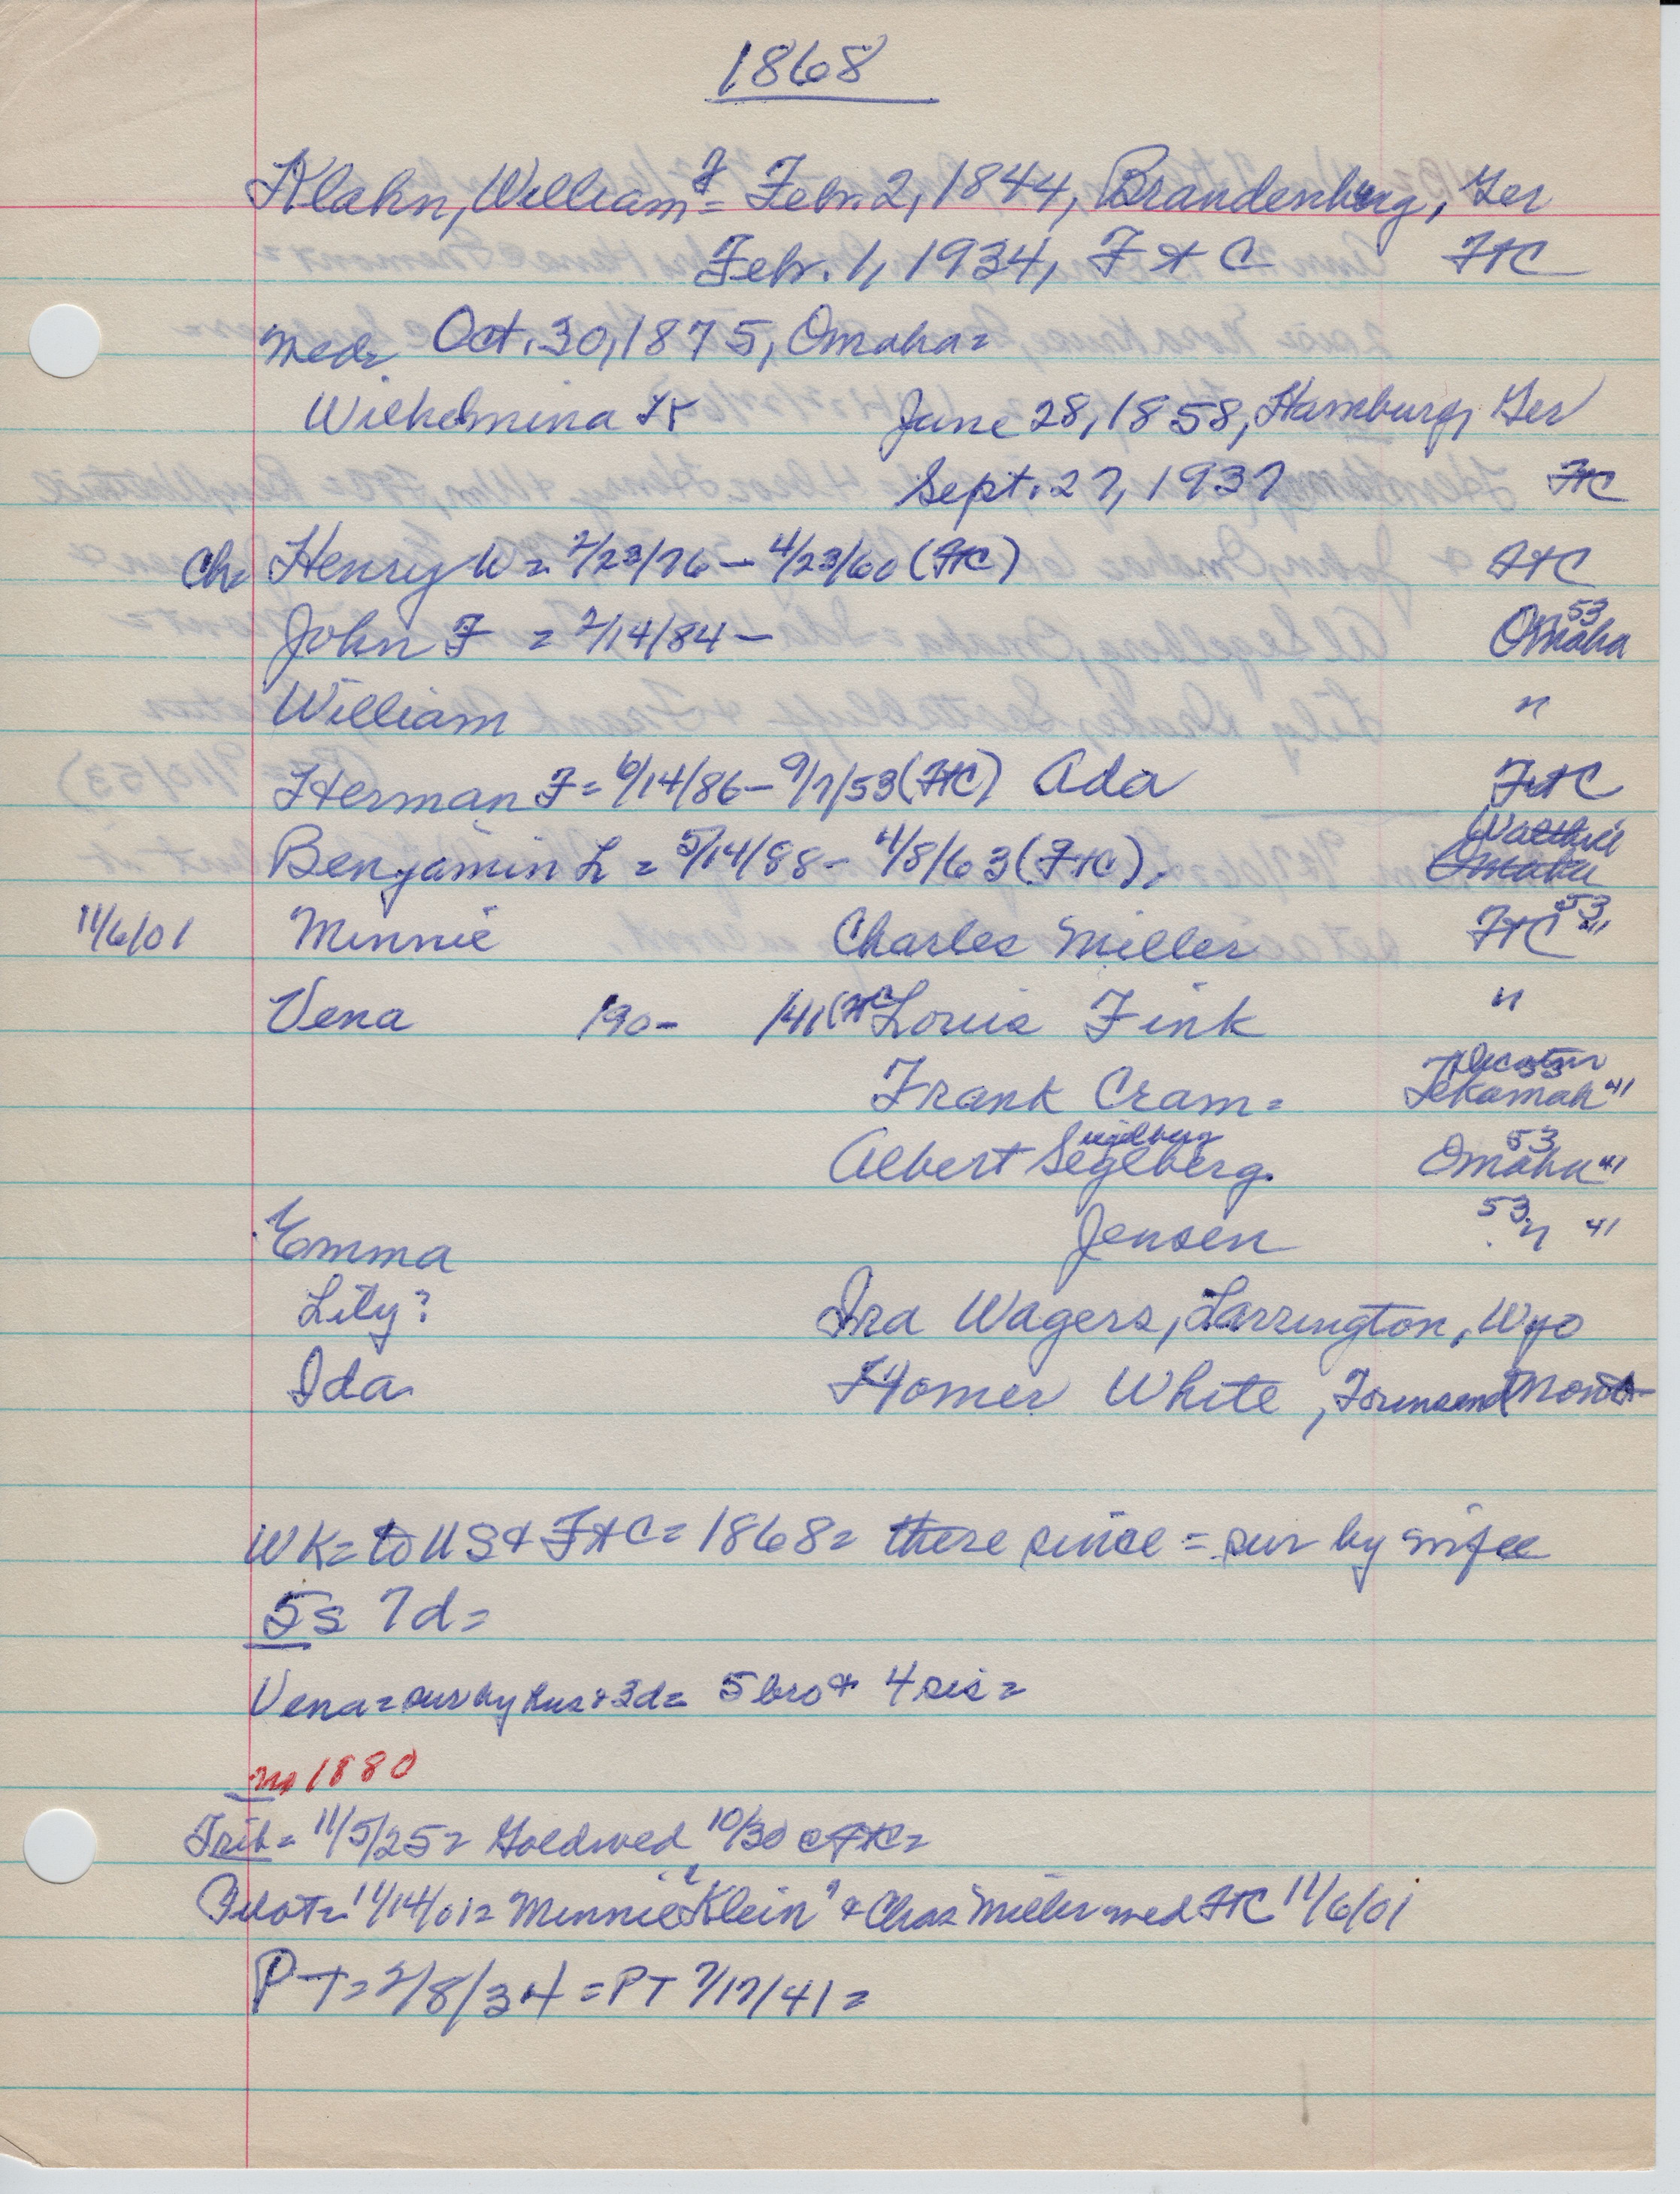 1868
Klahn, William J = Febr. 2, 1844, Brandenburg, Ger
Febr. 1, 1934, Ft C FtC
med= Oct. 30, 1875, Omaha=
Wilhelmina K June 28, 1858, Hamburg, Ger
Sept. 27, 1937 FtC
Ch= Henry W = 2/23/76 – 4/23/60 (FtC) FtC
John F = 2/14/84 – Omaha 53
William "
Herman F = 6/14/86 – 9/7/53 (FtC) Ada FtC
Benjamin L = 5/14/88 – 4/8/63 (FtC). Omaha Walthill
11/6/01 Minnie Charles Miller FtC 53 41
Vena /90 – /41 (FtC Louis Fink "
Frank Cram = Tekamah 41 Decatur 53
Albert Seglberg. Omaha 53 41
Emma Jensen 53 " 41
Lily? Ira Wagers, Larrington, Wyo
Ida Homer White, Townsend Mont
WK= to US & FtC = 1868= there since = sur by wife
5s 7d=
Vena = sur by hus + 3d= 5 bro + 4 sis =
no 1880
Trib= 11/5/25= Goldwed 10/30 @ FtC=
Pilot= 11/14/01= Minnie "Klein" & Chas Miller med FtC 11/6/01
PT= 2/8/34 = PT 7/17/41 =